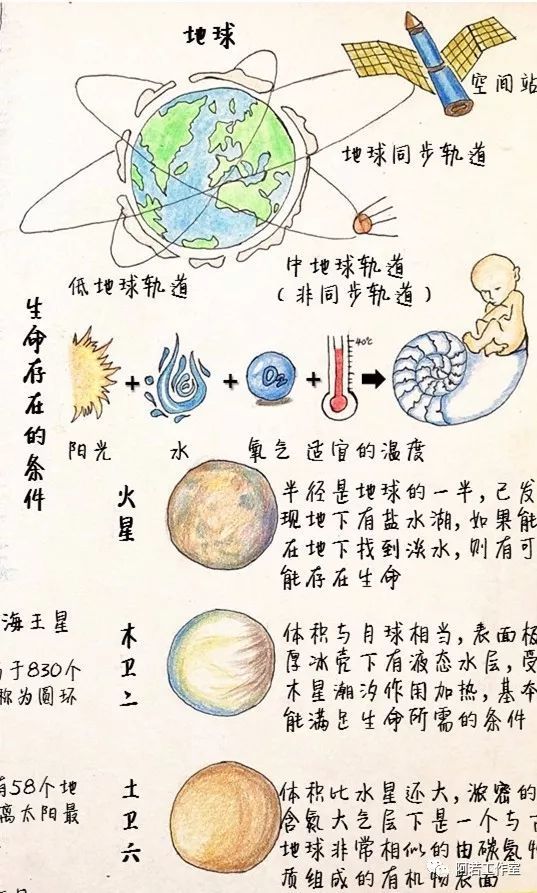 地球
空间站
地球同步轨道
低地球轨道
中地球轨道
(非同步轨道)
生命存在的条件
40℃
+ + O₂ +
阳光 水 氧气 适宜的温度
火星
半径是地球的一半,已发
现地下有盐水湖,如果能
在地下找到淡水,则有可
能存在生命
海王星
于830个
称为圆环
木卫二
体积与月球相当,表面极
厚冰壳下有液态水层,受
木星潮汐作用加热,基本
能满足生命所需的条件
有58个地
离太阳最
土卫六
体积比水星还大,浓密的
含氮大气层下是一个与古
地球非常相似的由碳氢物
质组成的有机物表面
阿若工作室